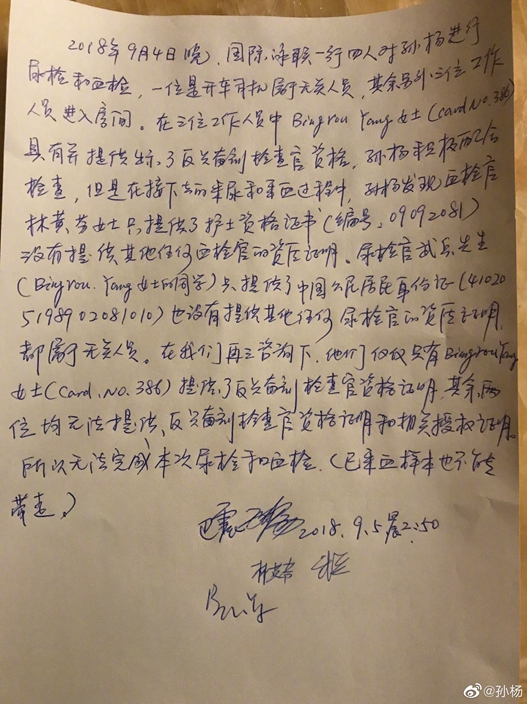 2018年9月4日晚，国际泳联一行四人对孙杨进行
尿检和血检，一位是开车司机属于无关人员，其余另外三位工作
人员进入房间。在三位工作人员中Bingrou Yang女士(card No.386)
具有并提供出示了反兴奋剂检查官资格，孙杨积极配合
检查，但是在接下去的采尿和采血过程中，孙杨发现血检官
林黄芬女士只提供了护士资格证书(编号：09092081)
没有提供其他任何血检官的资质证明。尿检官武岳先生
(Bingrou. Yang女士的同学)只提供了中国公民居民身份证(41020
5198902081010)也没有提供其他任何尿检官的资质证明，
都属于无关人员。在我们再三咨询下，他们仅仅只有Bingrou Yang
女士(Card.No.386)提供了反兴奋剂检查官资格证明，其余两
位均无法提供，反兴奋剂检查官资格证明和相关授权证明。
所以无法完成本次尿检和血检.(已采血样本也不能
带走。)
2018.9.5晨2:50
@孙杨